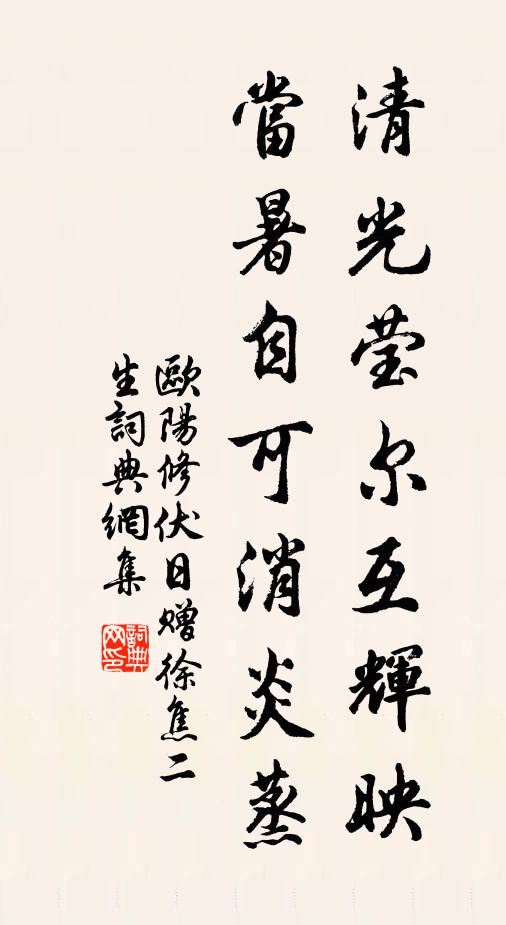 清光莹尔互輝映
當暑自可消炎蒸
歐陽修伏日贈徐焦二
生詞典網集
詞典
网印